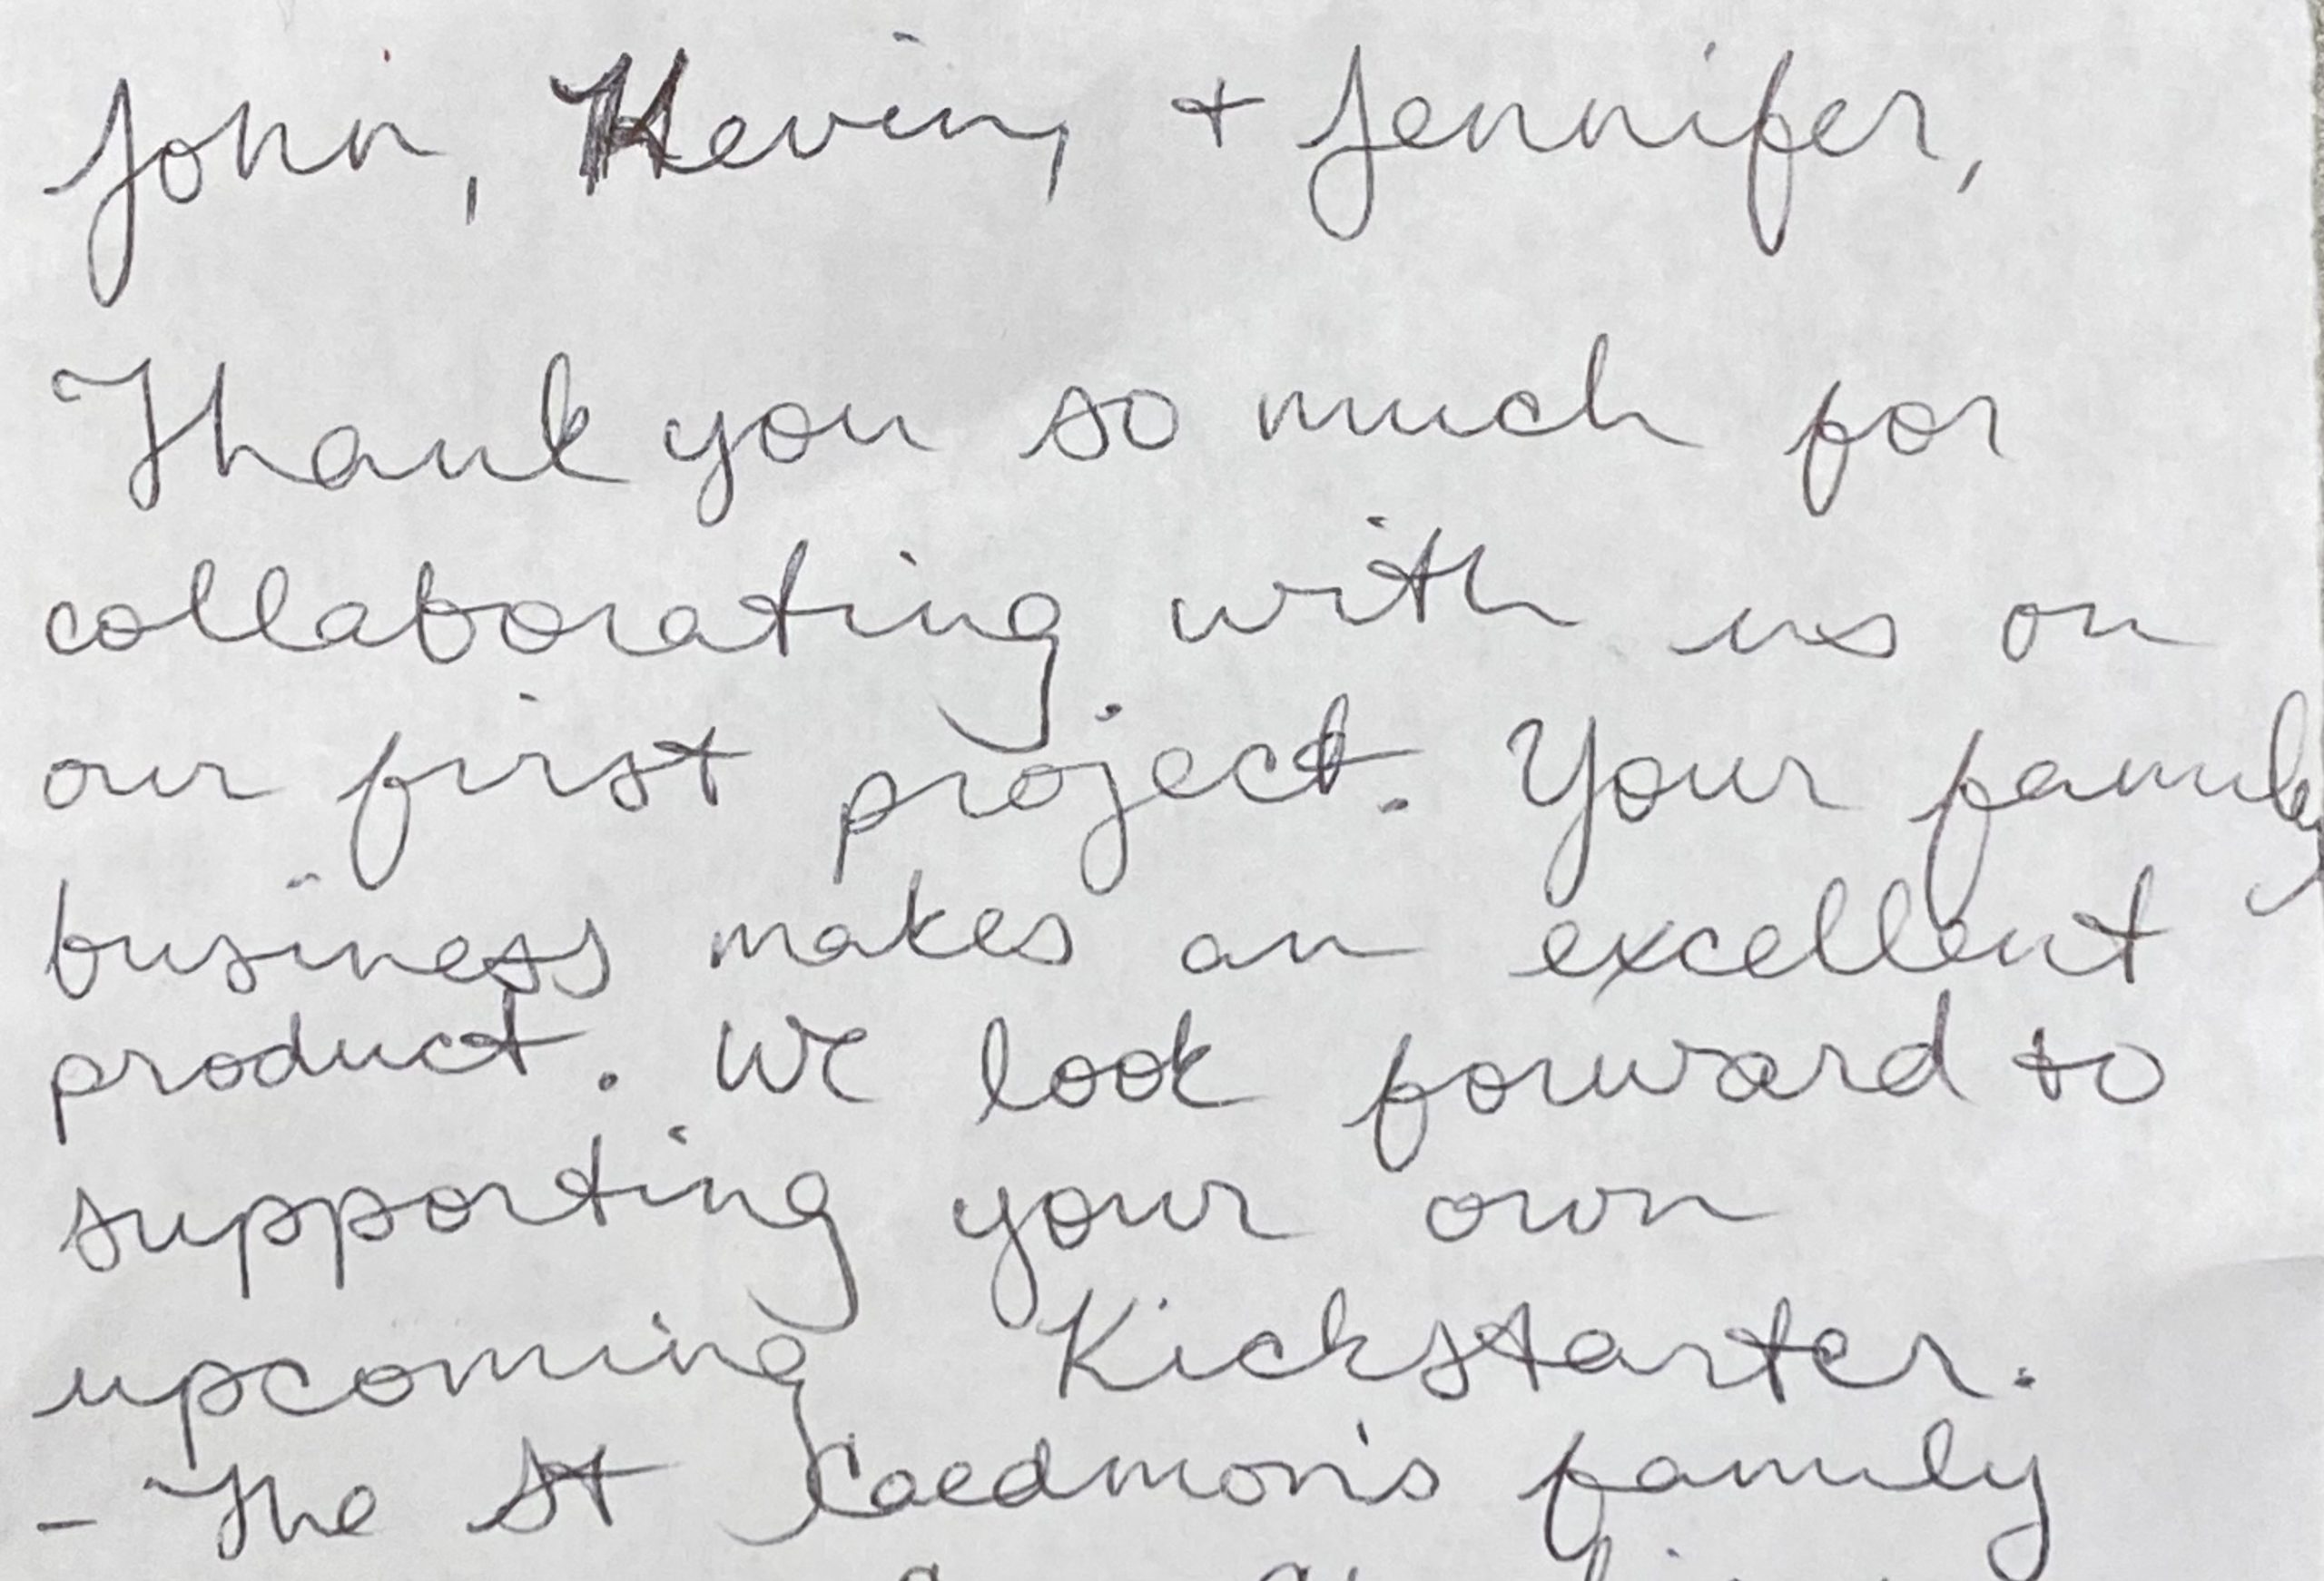 John, Kevin, + Jennifer,
Thank you so much for
collaborating with us on
our first project. Your family
business makes an excellent
product. We look forward to
supporting your own
upcoming Kickstarter.
- The St Caedmon's family